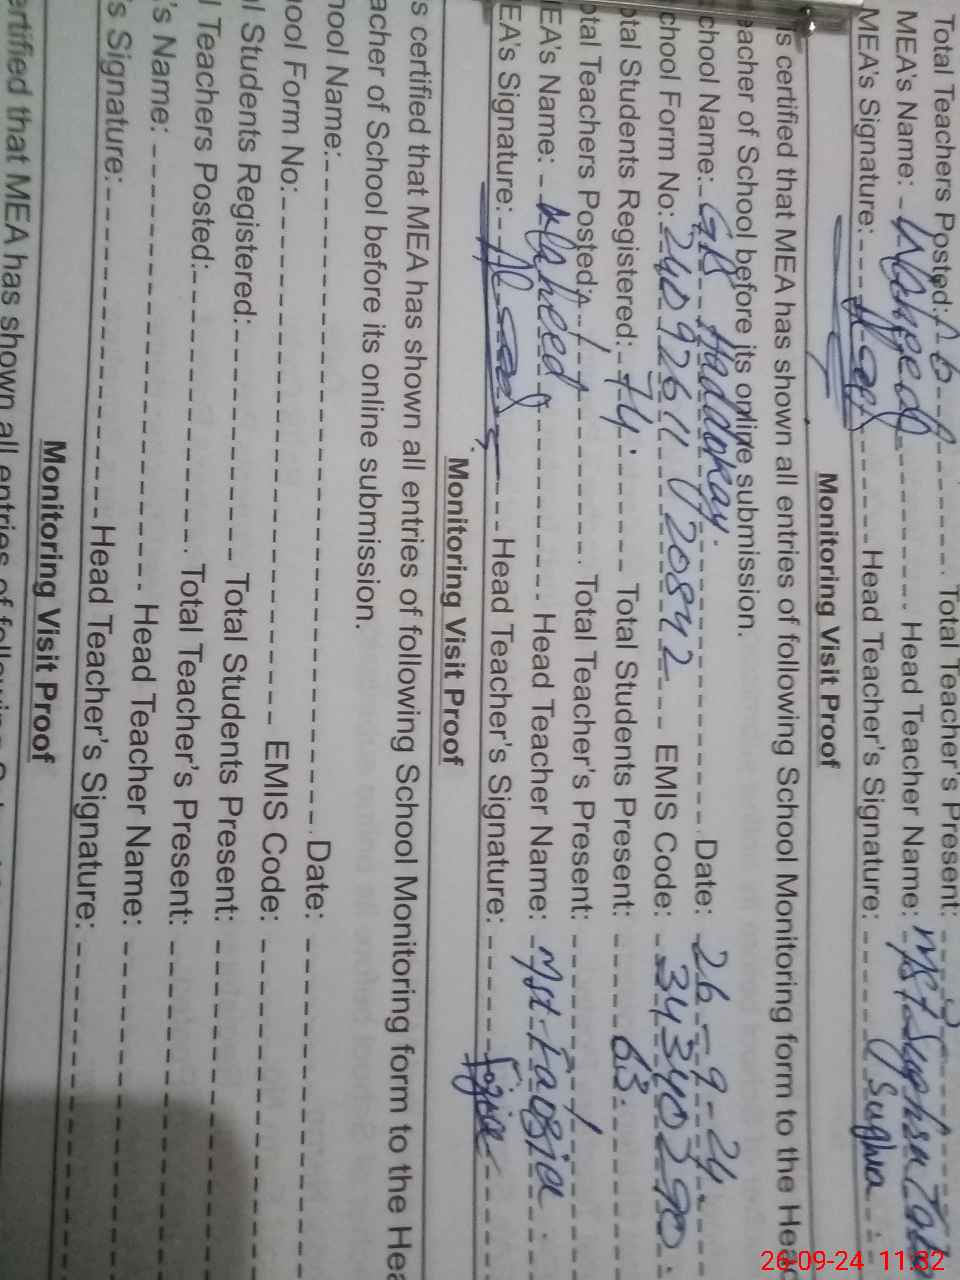 Total Teachers Posted: Total Teacher's Present:
MEA's Name: Waheed Head Teacher Name: Mst
MEA's Signature: Head Teacher's Signature:
Monitoring Visit Proof
is certified that MEA has shown all entries of following School Monitoring form to the Head
eacher of School before its online submission.
chool Name: GB Date: 26-9-24
chool Form No: EMIS Code: 343403290.
otal Students Registered: 74. Total Students Present: 63.
otal Teachers Posted: 1 Total Teacher's Present: 1
EA's Name: Waheed Head Teacher Name: Mst. Faozia.
EA's Signature: Head Teacher's Signature: Fozia
Monitoring Visit Proof
s certified that MEA has shown all entries of following School Monitoring form to the Hea
acher of School before its online submission.
hool Name: Date:
ool Form No: EMIS Code:
al Students Registered: Total Students Present:
l Teachers Posted: Total Teacher's Present:
's Name: Head Teacher Name:
's Signature: Head Teacher's Signature:
Monitoring Visit Proof
ertified that MEA has shown all entries of following
26-09-24 11:32